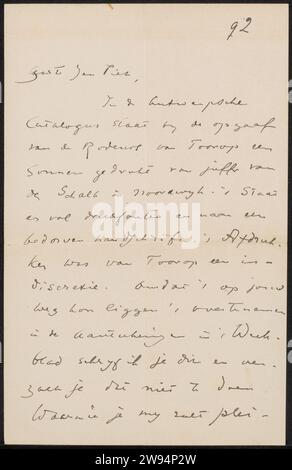 92
Beste Jan Piet,
In de Antwerpsche
Catalogus staat bij de opgaaf
van de Rodeurs van Toorop een
Sonnet gedrukt van juffr van
der Schalk te Noordwijk. 't Staat
er vol drukfouten en naar een
bedorven handschrift. 't Afdruk-
ken was van Toorop een in-
discretie. Omdat 't op jouw
weg kon liggen 't over te nemen
in de Aanteekeningen in 't Week-
blad schrijf ik je die en ver-
zoek je dit niet te doen
Waarmee je mij zult plei-
alamy
Image ID: 2W94P2W
www.alamy.com